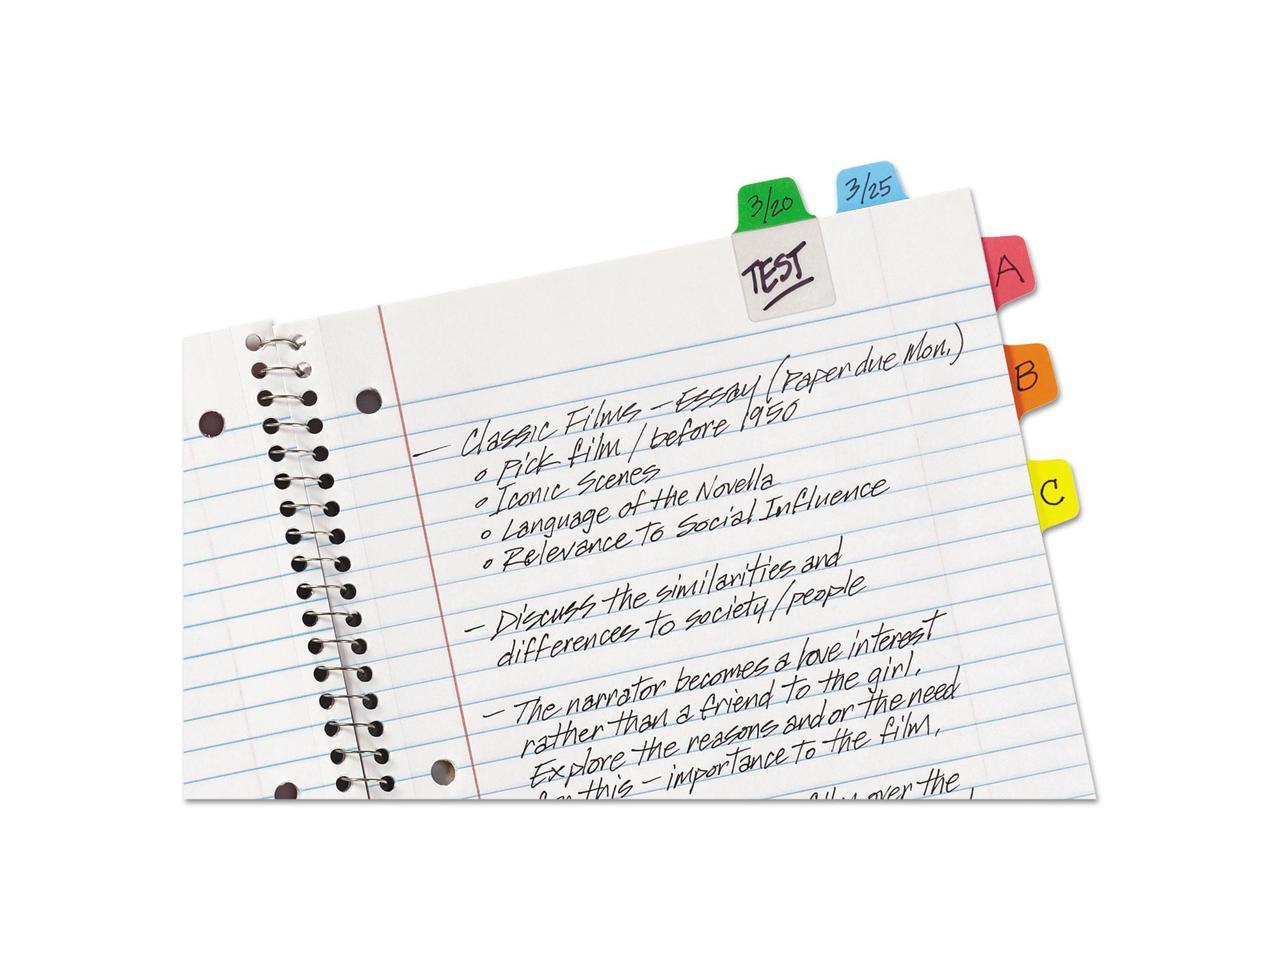 3/20
3/25
TEST
A
B
C
— Classic Films — Essay (Paper due Mon.)
o Pick film / before 1950
o Iconic Scenes
o Language of the Novella
o Relevance To Social Influence
— Discuss the similarities and
differences to society / people
— The narrator becomes a love interest
rather than a friend to the girl.
Explore the reasons and or the need
for this — importance to the film,
over the